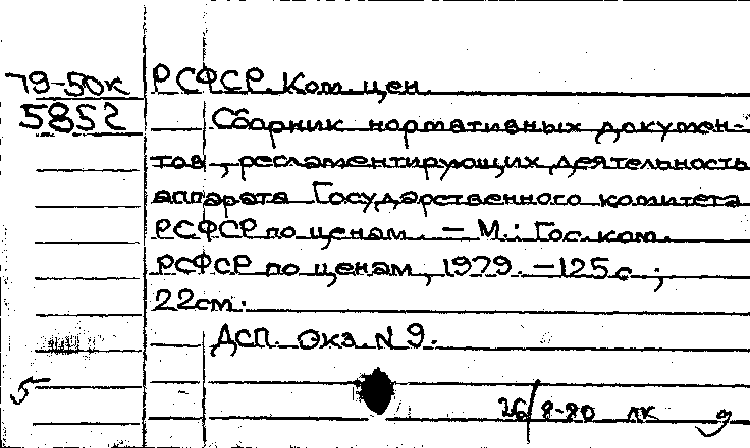 79-50к
5852
РСФСР. Ком. цен.
Сборник нормативных докумен-
тов, регламентирующих деятельность
аппарата Государственного комитета
РСФСР по ценам. — М.: Гос. ком.
РСФСР по ценам, 1979. — 125 с.;
22 см.
ДСП. Экз. N 9.
5
26/8-80 лк 9